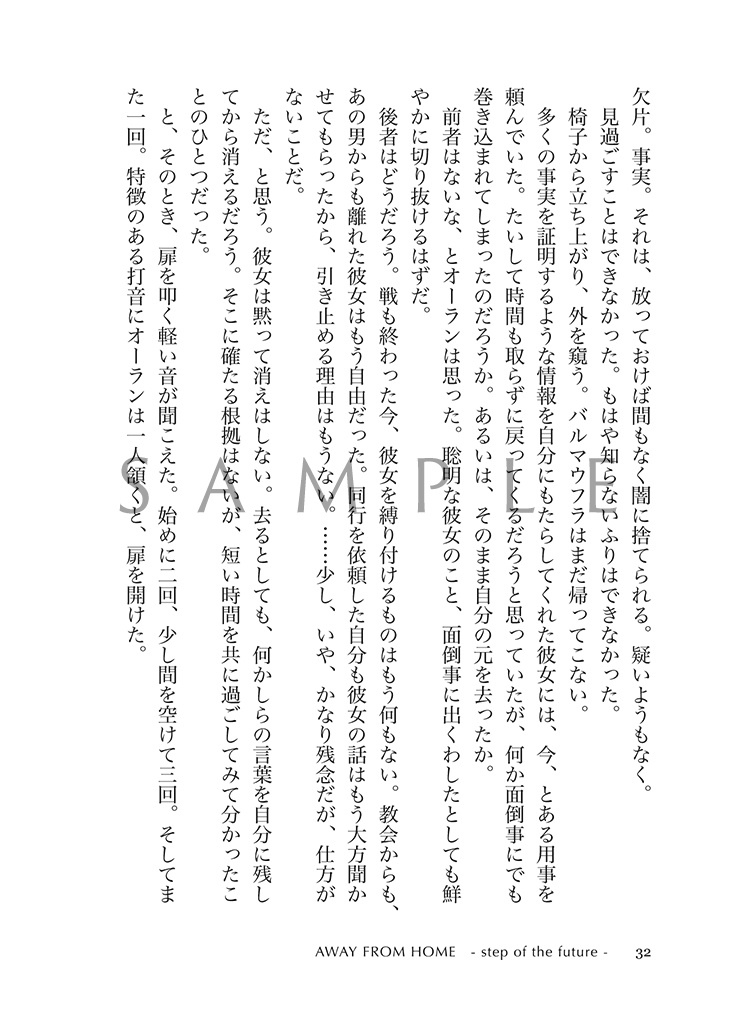 欠片。事実。それは、放っておけば間もなく闇に捨てられる。疑いようもなく。
見過ごすことはできなかった。もはや知らないふりはできなかった。
椅子から立ち上がり、外を窺う。バルマウフラはまだ帰ってこない。
多くの事実を証明するような情報を自分にもたらしてくれた彼女には、今、とある用事を
頼んでいた。たいして時間も取らずに戻ってくるだろうと思っていたが、何か面倒事にでも
巻き込まれてしまったのだろうか。あるいは、そのまま自分の元を去ったか。
前者はないな、とオーランは思った。聡明な彼女のこと、面倒事に出くわしたとしても鮮
やかに切り抜けるはずだ。
後者はどうだろう。戦も終わった今、彼女を縛り付けるものはもう何もない。教会からも、
あの男からも離れた彼女はもう自由だった。同行を依頼した自分も彼女の話はもう大方聞か
せてもらったから、引き止める理由はもうない。……少し、いや、かなり残念だが、仕方が
ないことだ。
ただ、と思う。彼女は黙って消えはしない。去るとしても、何かしらの言葉を自分に残し
てから消えるだろう。そこに確たる根拠はないが、短い時間を共に過ごしてみて分かったこ
とのひとつだった。
と、そのとき、扉を叩く軽い音が聞こえた。始めに二回、少し間を空けて三回。そしてま
た一回。特徴のある打音にオーランは一人頷くと、扉を開けた。
SAMPLE
AWAY FROM HOME - step of the future - 32